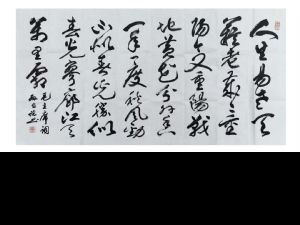 人生易老天
难老岁岁重
阳今又重阳战
地黄花分外香
一年一度秋风劲
不似春光胜似
春光寥廓江天
万里霜
毛主席词